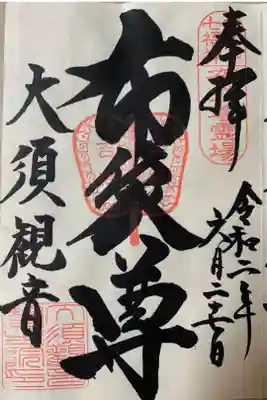 奉拝
令和二年
六月二十七日
布袋尊
大須観音